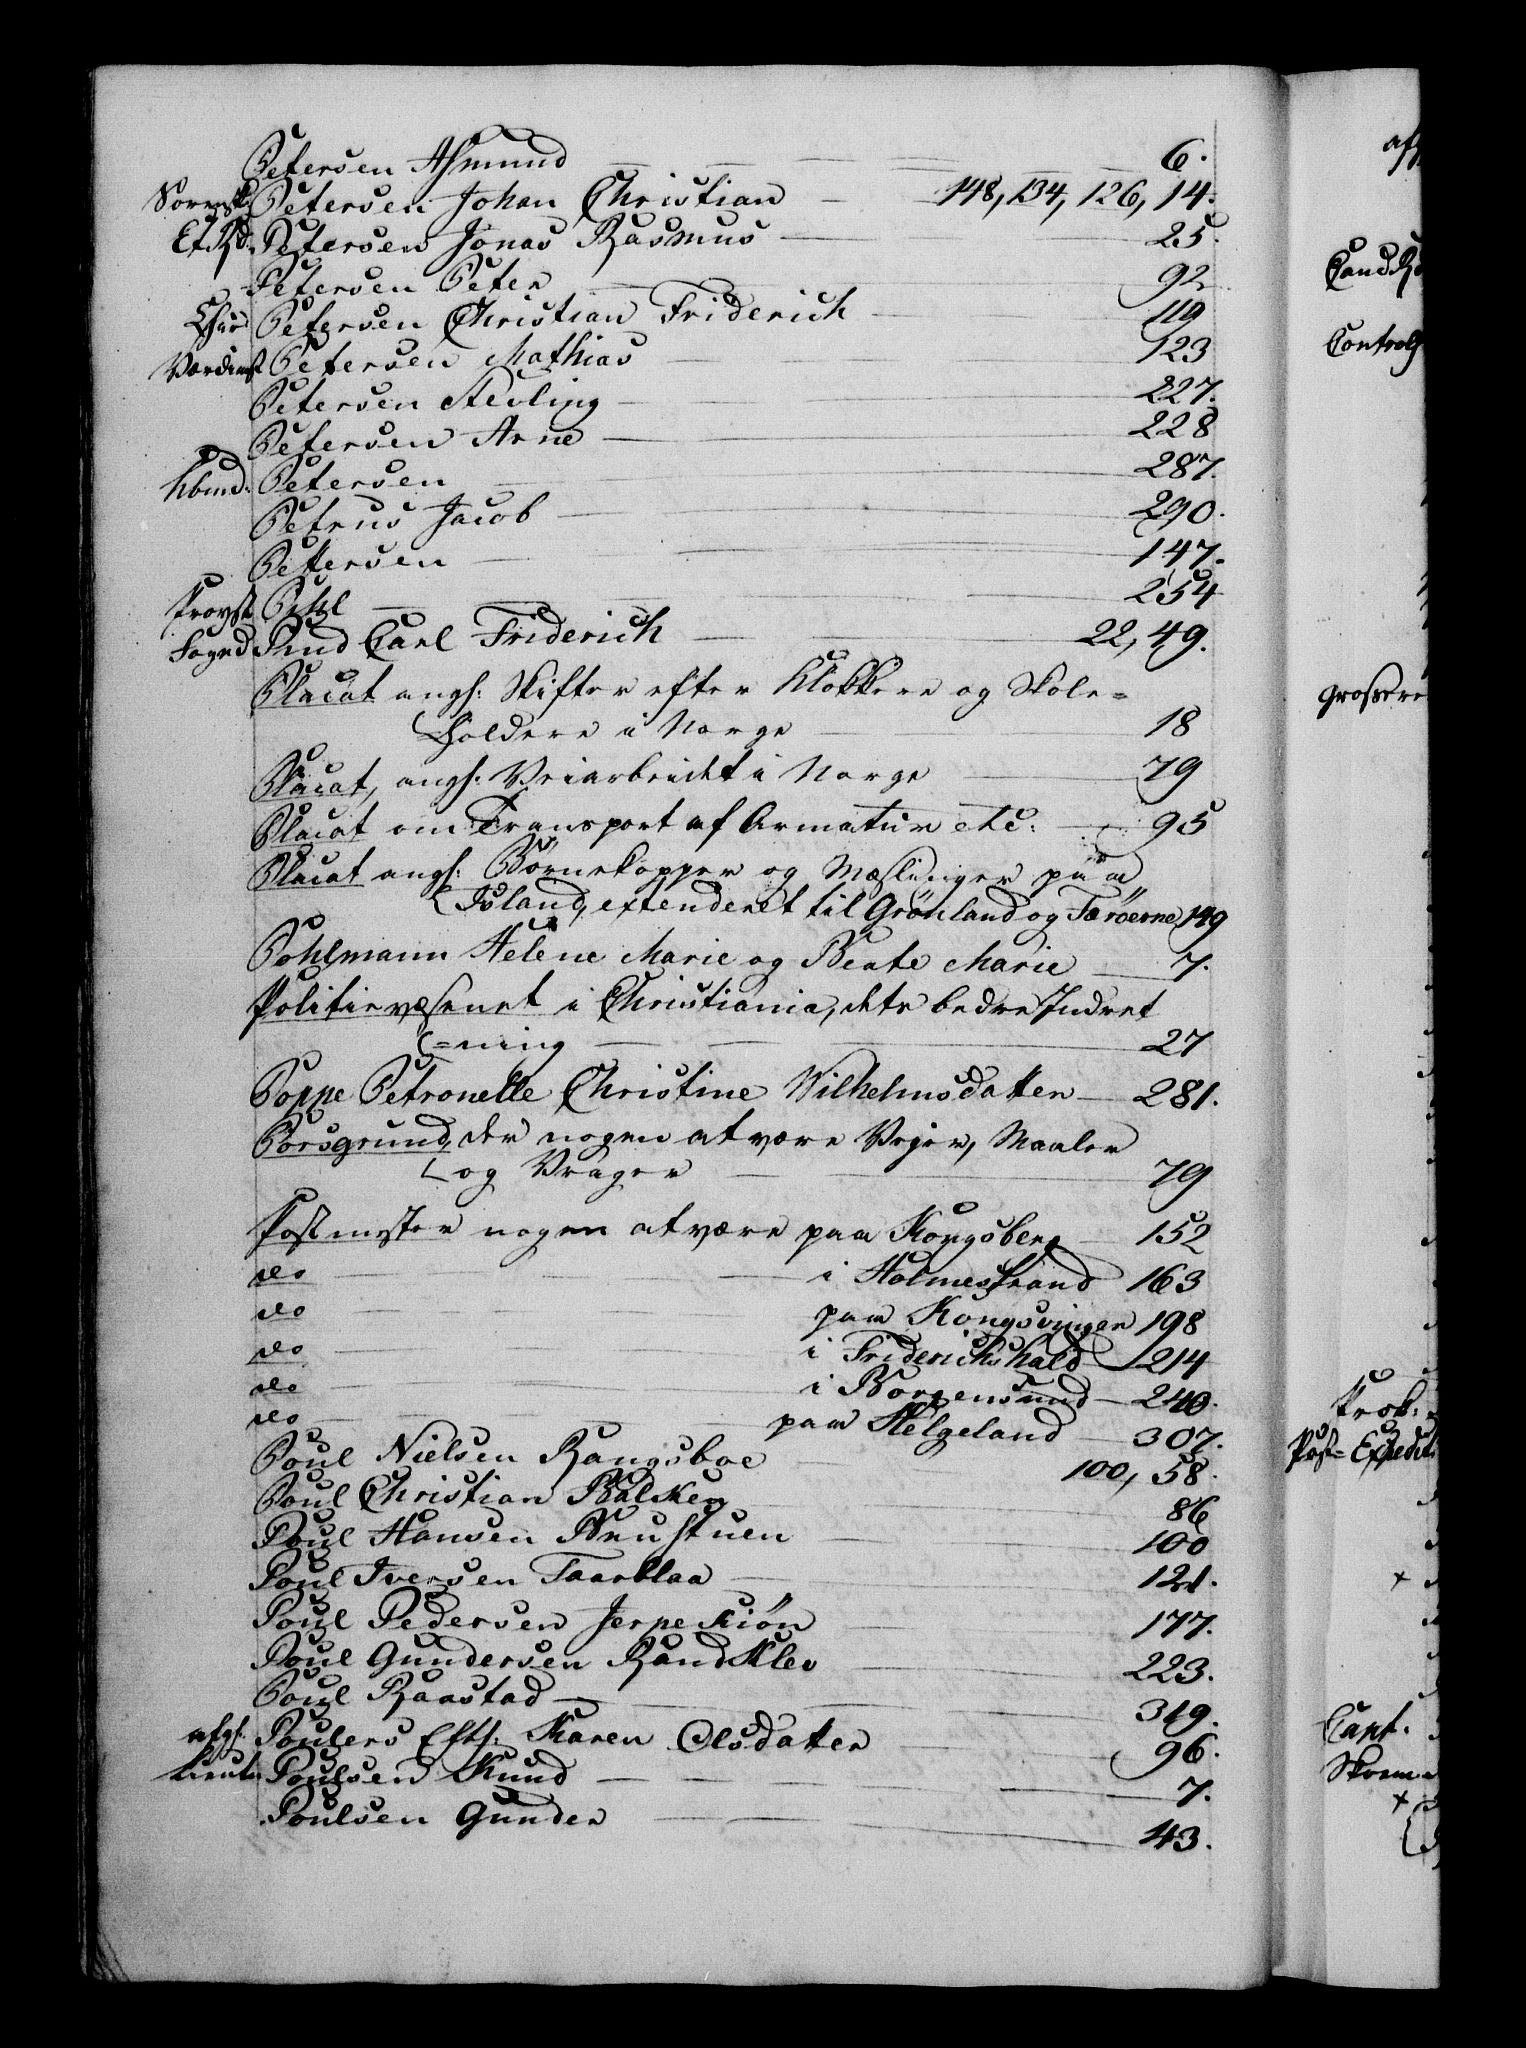 Petersen Asmund 6.
Sorensk: Petersen Johan Christian 148, 134, 126, 14.
Et.Rd. Petersen Jonas Rasmus 25.
Petersen Peter 92
Chir: Petersen Christian Friderich 119
Petersen Mathias 123
Petersen 227.
Petersen Arne 228
Kbmd: Petersen 287.
Petrus Jacob 290.
Pettersen 147.
Provst Pihl 254
Foged Pind Carl Friderich 22, 49.
Placat angh: Skifter efter Klokkere og Skole=
holdere i Norge 18
Placat, angh: Veiarbeidet i Norge 79
Placat om Transport af Armatur etc: 95
Placat angh: Børnekopper og Mæslinger paa
Island, extenderet til Grönland og Færöerne 149
Pohlmann Helene Marie og Beate Marie 7.
Politievæsenet i Christiania, dets bedre Indret
=ning 27
Poppe Petronelle Christine Wilhelmsdatter 281.
Porsgrund, der nogen at være Vejer, Maaler
og Vrager 79
Postmester nogen at være paa Kongsberg 152
do i Holmestrand 163
do paa Kongsvinger 198
do i Friderichshald 214
do i Borgensund 240.
do paa Helgeland 307.
Poul Nielsen Rangsboe 100, 58.
Poul Christian Balsken 86
Poul Hansen Brustuen 100
Poul Iversen Taarblaa 121.
Poul Pedersen Jerpekiön 177.
Poul Gundersen RandKlev 223.
Poul Raastad 319.
afgh: Poulers Eftl: Karen Olsdatter 96.
Lieutn Poulsen Knud 7.
Poulsen Gunder 43.
Cand
Control
Grossere
Prok:
Post= Expedit
Capt.